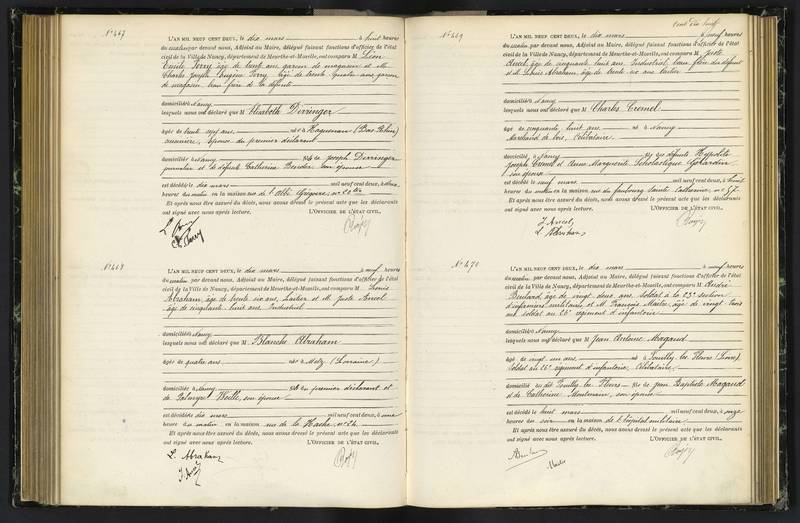 N° 467
L'AN MIL NEUF CENT DEUX, le dix mars à huit heures
du matin par devant nous, Adjoint au Maire, délégué faisant fonctions d'officier de l'état
civil de la Ville de Nancy, département de Meurthe-et-Moselle, ont comparu M Léon
Emile Ferry, âgé de trente ans, garçon de magasin et M
Charles Joseph Eugène Ferry, âgé de trente quatre ans, garçon
de magasin, beau frère de la défunte
domiciliés à Nancy
lesquels nous ont déclaré que M Elisabeth Dirringer
âgée de trente sept ans née à Haguenau (Bas-Rhin)
épouse du premier déclarant
domiciliée à Nancy fille de Joseph Dirringer
journalier et de défunte Catherine son épouse
est décédée dix mars mil neuf cent deux, à
heures du matin en la maison rue de l'Abbé Grégoire, n°
Et après nous être assuré du décès, nous avons dressé le présent acte que les déclarants
ont signé avec nous après lecture. L'OFFICIER DE L'ÉTAT CIVIL,
N° 468
L'AN MIL NEUF CENT DEUX, le dix mars à neuf heures
du matin par devant nous, Adjoint au Maire, délégué faisant fonctions d'officier de l'état
civil de la Ville de Nancy, département de Meurthe-et-Moselle, ont comparu M Louis
Abraham, âgé de trente six ans, et M. Juste Ancel
âgé de cinquante huit ans, Industriel
domiciliés à Nancy
lesquels nous ont déclaré que M Blanche Abraham
âgée de quatre ans née à Metz (Lorraine)
domiciliée à Nancy fille du premier déclarant et
de Palmyre son épouse
est décédée dix mars mil neuf cent deux, à une
heure du matin en la maison rue de la Hache, n° 24
Et après nous être assuré du décès, nous avons dressé le présent acte que les déclarants
ont signé avec nous après lecture. L'OFFICIER DE L'ÉTAT CIVIL,
L. Abraham
J. Ancel
cent dix neuf
N° 469
L'AN MIL NEUF CENT DEUX, le dix mars à neuf heures
du matin par devant nous, Adjoint au Maire, délégué faisant fonctions d'officier de l'état
civil de la Ville de Nancy, département de Meurthe-et-Moselle, ont comparu M Juste
Ancel, âgé de cinquante huit ans, Industriel, beau frère du défunt
et M. Louis Abraham, âgé de trente six ans
domiciliés à Nancy
lesquels nous ont déclaré que M Charles
âgé de cinquante huit ans né à Nancy
marchand de bois, célibataire
domicilié à Nancy fils de défunts Hypolite
Joseph et Anne Marguerite Scholastique
son épouse
est décédé le neuf mars mil neuf cent deux, à huit
heures du matin en la maison rue du faubourg Sainte Catherine, n° 57
Et après nous être assuré du décès, nous avons dressé le présent acte que les déclarants
ont signé avec nous après lecture. L'OFFICIER DE L'ÉTAT CIVIL,
J. Ancel
L. Abraham
N° 470
L'AN MIL NEUF CENT DEUX, le dix mars à neuf heures
du matin par devant nous, Adjoint au Maire, délégué faisant fonctions d'officier de l'état
civil de la Ville de Nancy, département de Meurthe-et-Moselle, ont comparu M André
âgé de vingt deux ans, soldat à la 23e section
d'infirmiers militaires et M. François âgé de vingt trois
ans soldat au 26e régiment d'infanterie
domiciliés à Nancy
lesquels nous ont déclaré que M Jean Antoine Magaud
âgé de vingt un ans né à Pouilly les Fleurs (Loire)
soldat au 26e régiment d'infanterie, célibataire
domicilié au dit Pouilly les Fleurs fils de Jean Baptiste Magaud
et de Catherine son épouse
est décédé le huit mars mil neuf cent deux, à onze
heures du soir en la maison de l'hôpital militaire
Et après nous être assuré du décès, nous avons dressé le présent acte que les déclarants
ont signé avec nous après lecture. L'OFFICIER DE L'ÉTAT CIVIL,